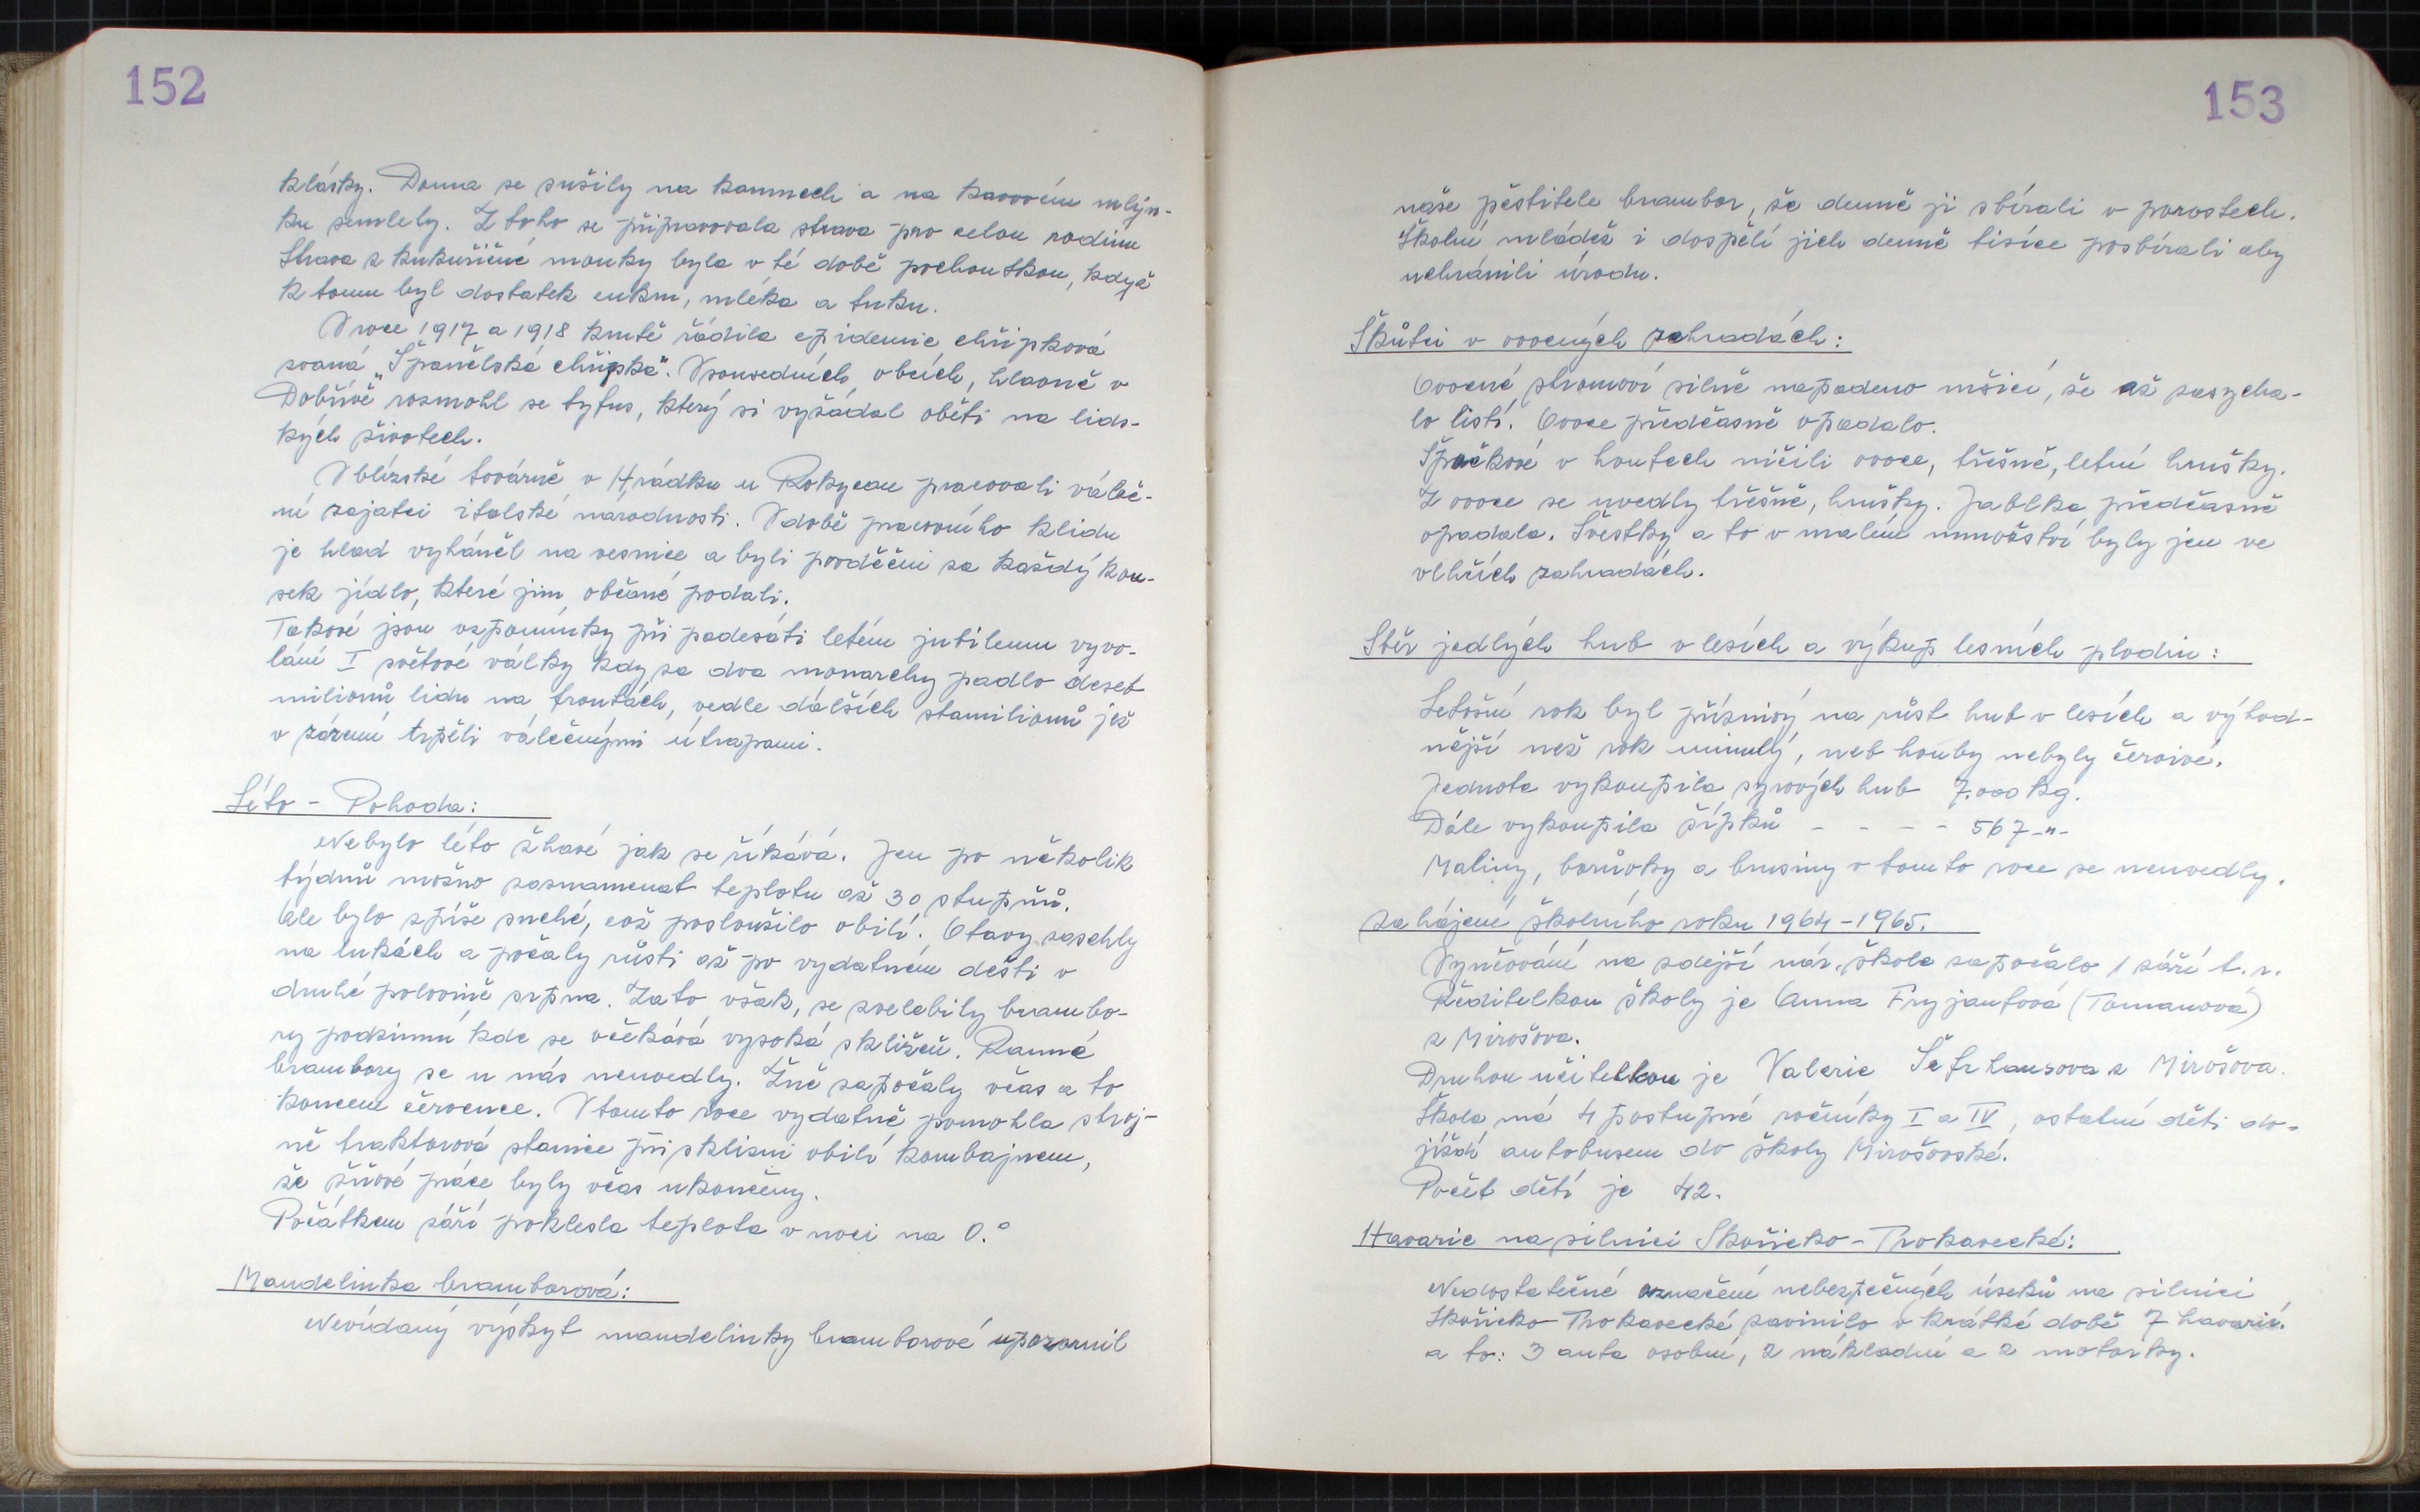 152
klásky. Doma se sušily na kamnech a na kavovém mlýn-
ku semlely. Z toho se připravovala strava pro celou rodinu
Strava z kukuřičné mouky byla v té době pochoutkou, když
k tomu byl dostatek cukru, mléka a tuku.
V roce 1917 a 1918 krutě řádila epidemie chřipková
zvaná „Španělská chřipka". V sousedních obcích, hlavně v
Dobřívě rozmohl se tyfus, který si vyžádal oběti na lids-
kých životech.
V blízské továrně v Hrádku u Rokycan pracovali váleč-
ní zajatci italské národnosti. V době pracovního klidu
je hlad vyháněl na vesnice a byli povděčni za každý kou-
sek jídlo, které jim občané podali.
Takové jsou vzpomínky při padesáti letém jubileumu vyvo-
lání I světové války kdy za dva monarchy padlo deset
milionů lidu na frontách, vedle dálších stamilionů jež
v zázemí trpěli válečnými útrapami.
Léto - Pohoda:
Nebylo léto žhavé jak se říkává. Jen po několik
týdnů možno zaznamenat teplotu až 30 stupňů.
Ale bylo spíše suché, což posloužilo obilí. Otavy zaschly
na lukách a počaly růsti až po vydatném dešti v
druhé polovině srpna. Zato však, se zvelebily brambo-
ry podzimní kde se očekává vysoká sklizeň. Ranné
brambory se u nás neuvedly. Žně započaly včas a to
koncem července. V tomto roce vydatně pomohla stroj-
ně traktorová stanice při sklizni obilí kombajnem,
že žňové práce byly včas ukončeny.
Počátkem září poklesla teplota v noci na 0.°
Mandelinka bramborová:
Nevídaný výskyt mandelinky bramborové upozornil
153
naše pěstitele brambor, že denně ji sbírali v porostech.
Školní mládež i dospělí jich denně tisíce posbírali aby
uchránili úrodu.
Škůtci v ovocných zahradách:
Ovocné stromoví silně napadeno mšicí, že až zasycha-
lo listí. Ovoce předčasně opadalo.
Špačkové v houtech ničili ovoce, třešně, letní hrušky.
Z ovoce se uvedly třešně, hrušky. Jablka předčasně
opadala. Švestky a to v malém množství byly jen ve
vlhčích zahradách.
Sběr jedlých hub v lesích a výkup lesních plodin:
Letošní rok byl příznivý na růst hub v lesích a výhod-
nější než rok minulý, neb houby nebyly červivé.
Jednota vykoupila syrových hub 7.000 kg.
Dále vykoupila šípků - - - - 567 -"-
Maliny, borůvky a brusiny v tomto roce se neuvedly.
Zahájení školního roku 1964-1965.
Vyučování na zdejší nár. škole započalo 1 září t.r.
Ředitelkou školy je Anna Fryjaufová (Tomanová)
z Mirošova.
Druhou učitelkou je Valerie Šefrhansova z Mirošova.
Škola má 4 postupné ročníky I a IV, ostatní děti do-
jíždí autobusem do školy Mirošovské.
Počet dětí je 42.
Havarie na silnici Skořicko-Trokavecké:
Nedostatečné označení nebezpečných úseků na silnici
Skořicko-Trokavecké zavinilo v krátké době 7 havarií.
a to: 3 auta osobní, 2 nákladní a 2 motorky.